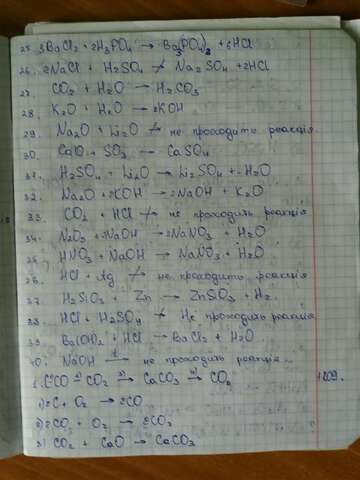 25. 3BaCl2 + 2H3PO4 → Ba3(PO4)2 + 6HCl
26. 2NaCl + H2SO4 ↛ Na2SO4 + 2HCl
27. CO2 + H2O → H2CO3
28. K2O + H2O → 2KOH
29. Na2O + Li2O ↛ не проходить реакція.
30. CaO + SO3 → CaSO4
31. H2SO4 + Li2O → Li2SO4 + H2O
32. Na2O + 2KOH → 2NaOH + K2O
33. CO2 + HCl ↛ не проходить реакція
34. N2O5 + 2NaOH → 2NaNO3 + H2O
35. HNO3 + NaOH → NaNO3 + H2O
36. HCl + Ag ↛ не проходить реакція
37. H2SiO3 + Zn → ZnSiO3 + H2
38. HCl + H2SO4 ↛ Не проходить реакція
39. Ba(OH)2 + HCl → BaCl2 + H2O
40. NaOH t→ не проходить реакція
CO CO2 3)→ CaCO3 4)→ CO2
1) 2C + O2 → 2CO
2) 2CO + O2 → 2CO2
3) CO2 + CaO → CaCO3